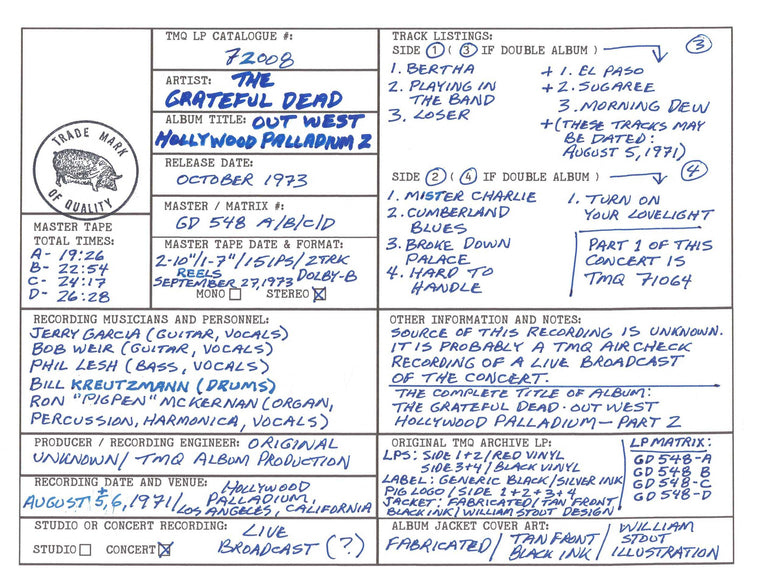 TMQ LP CATALOGUE #:
72008
ARTIST: THE
GRATEFUL DEAD
ALBUM TITLE: OUT WEST
HOLLYWOOD PALLADIUM 2
RELEASE DATE:
OCTOBER 1973
MASTER / MATRIX #:
GD 548 A/B/C/D
MASTER TAPE DATE & FORMAT:
2-10"/1-7"/15IPS/2TRK
REELS DOLBY-B
SEPTEMBER 27, 1973
MONO STEREO
TRADE MARK
OF QUALITY
MASTER TAPE
TOTAL TIMES:
A- 19:26
B- 22:54
C- 24:17
D- 26:28
TRACK LISTINGS:
SIDE 1 ( 3 IF DOUBLE ALBUM ) 3
1. BERTHA
2. PLAYING IN
THE BAND
3. LOSER
+ 1. EL PASO
+ 2. SUGAREE
3. MORNING DEW
+ (THESE TRACKS MAY
BE DATED:
AUGUST 5, 1971)
SIDE 2 ( 4 IF DOUBLE ALBUM ) 4
1. MISTER CHARLIE
2. CUMBERLAND
BLUES
3. BROKE DOWN
PALACE
4. HARD TO
HANDLE
1. TURN ON
YOUR LOVELIGHT
PART 1 OF THIS
CONCERT IS
TMQ 71064
RECORDING MUSICIANS AND PERSONNEL:
JERRY GARCIA (GUITAR, VOCALS)
BOB WEIR (GUITAR, VOCALS)
PHIL LESH (BASS, VOCALS)
BILL KREUTZMANN (DRUMS)
RON "PIGPEN" MCKERNAN (ORGAN,
PERCUSSION, HARMONICA, VOCALS)
OTHER INFORMATION AND NOTES:
SOURCE OF THIS RECORDING IS UNKNOWN.
IT IS PROBABLY A TMQ AIRCHECK
RECORDING OF A LIVE BROADCAST
OF THE CONCERT.
THE COMPLETE TITLE OF ALBUM:
THE GRATEFUL DEAD · OUT WEST
HOLLYWOOD PALLADIUM — PART 2
PRODUCER / RECORDING ENGINEER: ORIGINAL
UNKNOWN / TMQ ALBUM PRODUCTION
RECORDING DATE AND VENUE: HOLLYWOOD
AUGUST ± 5, 6, 1971 / PALLADIUM,
LOS ANGELES, CALIFORNIA
STUDIO OR CONCERT RECORDING: LIVE
STUDIO CONCERT BROADCAST (?)
ORIGINAL TMQ ARCHIVE LP:
LPS: SIDE 1+2 / RED VINYL
SIDE 3+4 / BLACK VINYL
LABEL: GENERIC BLACK/SILVER INK
PIG LOGO / SIDE 1+2+3+4
JACKET: FABRICATED/TAN FRONT
BLACK INK/WILLIAM STOUT DESIGN
LP MATRIX:
GD 548-A
GD 548 B
GD 548-C
GD 548-D
ALBUM JACKET COVER ART:
FABRICATED / TAN FRONT
BLACK INK / WILLIAM
STOUT
ILLUSTRATION